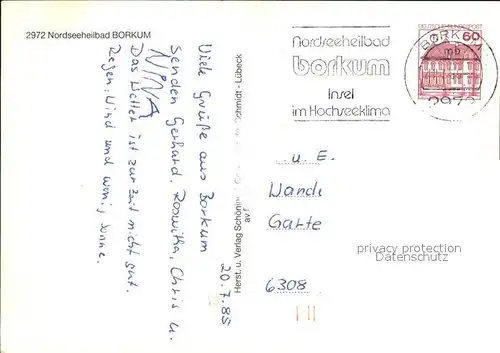 2972 Nordseeheilbad BORKUM
Viele Grüße aus Borkum
20.7.85
senden Gerhard, Roswitha, Chris u.
NINA
Das Wetter ist zur Zeit nicht gut.
Regen, Wind und wenig Sonne.
Herst. u. Verlag Schöning Schmidt - Lübeck
Nordseeheilbad
borkum
Insel
im Hochseeklima
DEUTSCHE BUNDESPOST
60
BORKUM
mb
2972
u. E.
Wand
Garte
6308
privacy protection
Datenschutz